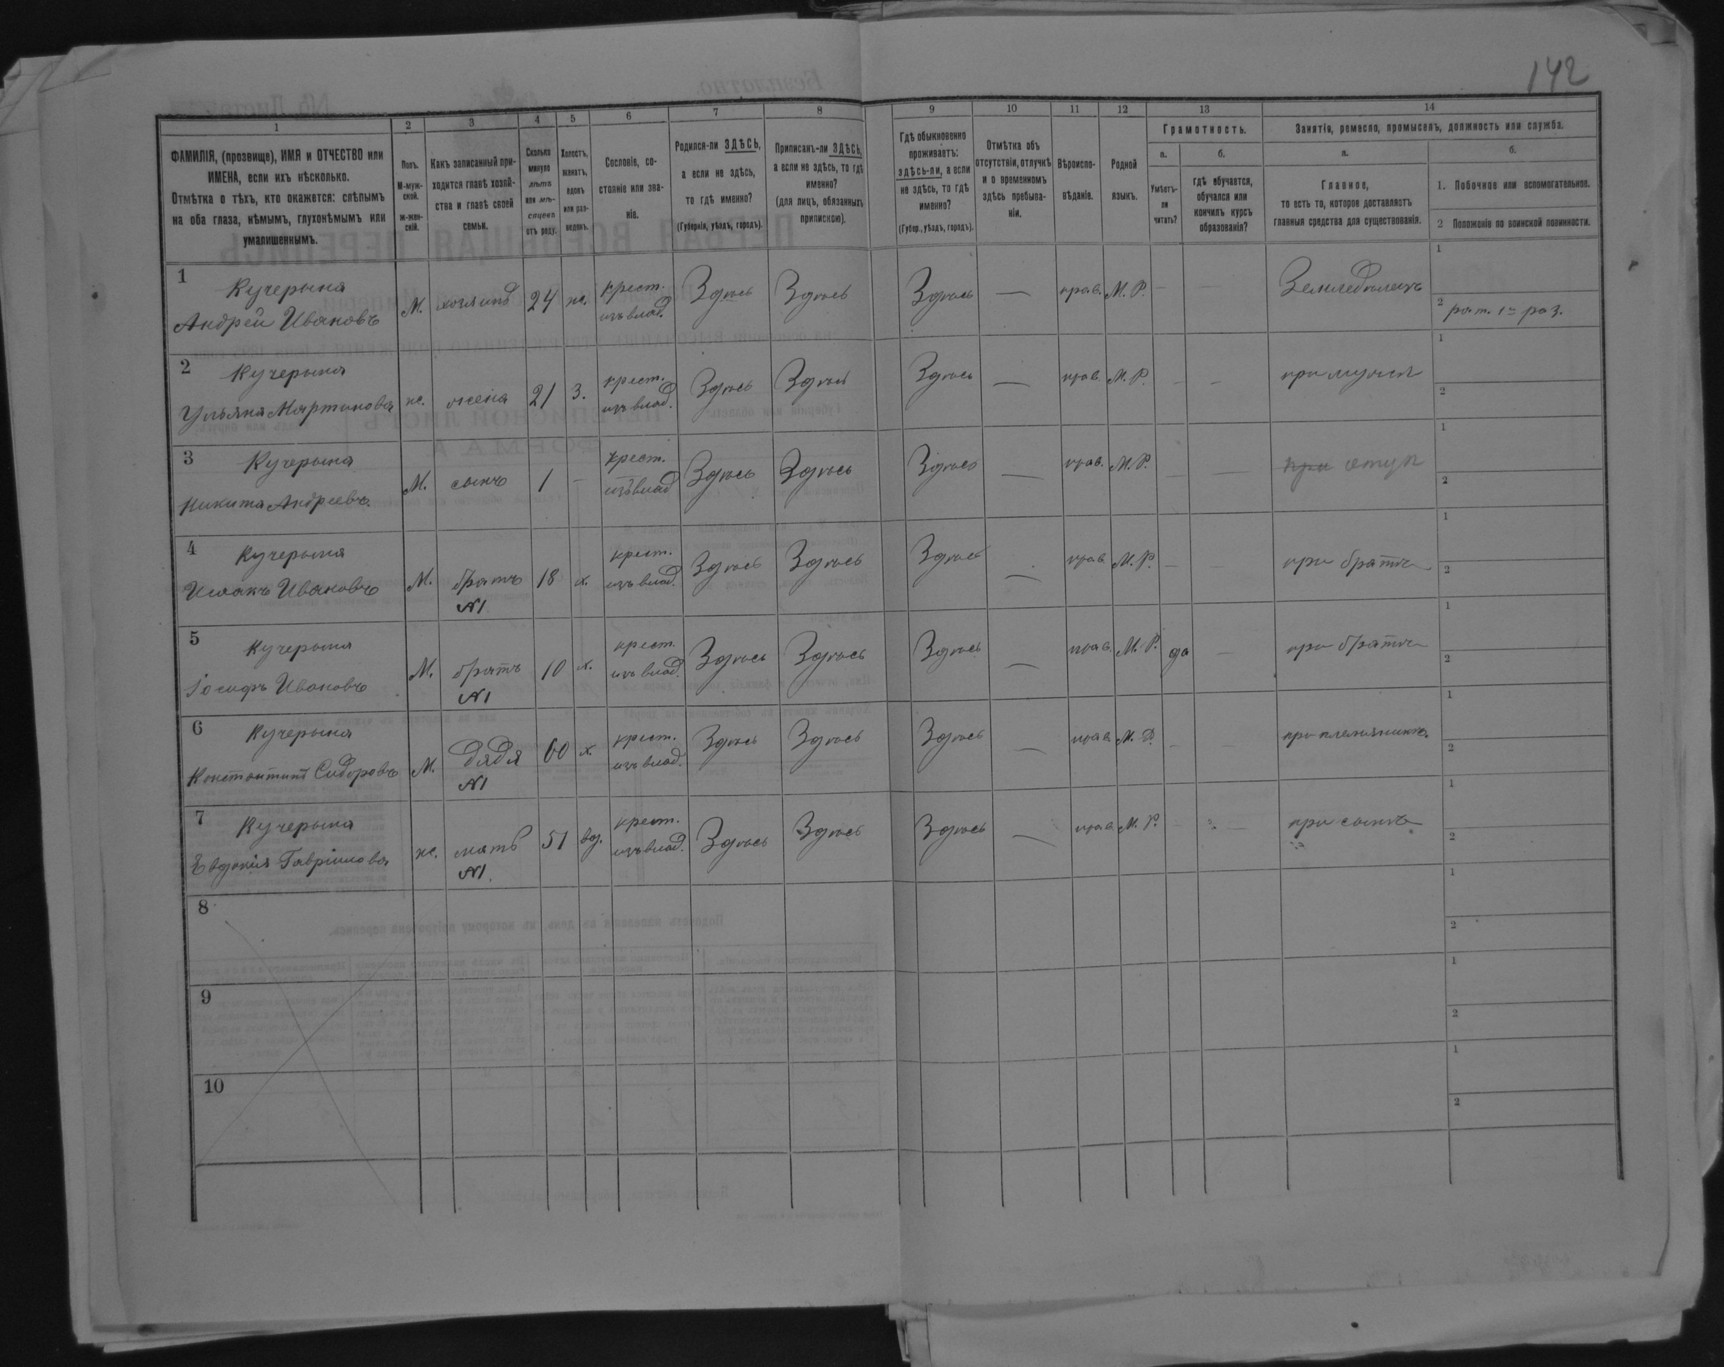 142
1 2 3 4 5 6 7 8 9 10 11 12 13 14
ФАМИЛІЯ, (прозвище), ИМЯ и ОТЧЕСТВО или
ИМЕНА, если ихъ нѣсколько.
Отмѣтка о тѣхъ, кто окажется: слѣпымъ
на оба глаза, нѣмымъ, глухонѣмымъ или
умалишеннымъ.
Полъ.
М-муж-
ской.
Ж-жен-
скій.
Какъ записанный при-
ходится главѣ хозяй-
ства и главѣ своей
семьи.
Сколько
минуло
лѣтъ
или мѣ-
сяцевъ
отъ роду.
Холостъ,
женатъ,
вдовъ
или раз-
веденъ.
Сословіе, со-
стояніе или зва-
ніе.
Родился-ли ЗДѢСЬ,
а если не здѣсь,
то гдѣ именно?
(Губернія, уѣздъ, городъ).
Приписанъ-ли ЗДѢСЬ,
а если не здѣсь, то гдѣ
именно?
(для лицъ, обязанныхъ
припискою).
Гдѣ обыкновенно
проживаетъ:
здѣсь-ли, а если
не здѣсь, то гдѣ
именно?
(Губер., уѣздъ, городъ).
Отмѣтка объ
отсутствіи, отлучкѣ
и о временномъ
здѣсь пребыва-
ніи.
Вѣроиспо-
вѣданіе.
Родной
языкъ.
Грамотность.
а.
Умѣетъ-
ли
читать?
б.
гдѣ обучается,
обучался или
кончилъ курсъ
образованія?
Занятіе, ремесло, промыселъ, должность или служба.
а.
Главное,
то есть то, которое доставляетъ
главныя средства для существованія.
б.
1. Побочное или вспомогательное.
2 Положеніе по воинской повинности.
1 Кучерына
Андрей Ивановъ М. хозяинъ 24 ж. крест. изъ влад. Здѣсь Здѣсь Здѣсь — прав. М. Р. — — Земледѣлецъ
1
2 рат. 1го раз.
2 Кучерына
Ульяна Мартинова ж. жена 21 з. крест. изъ влад. Здѣсь Здѣсь Здѣсь — прав. М. Р. — — при мужѣ
1
2
3 Кучерына
Никита Андреевъ. М. сынъ 1 — крест. изъ влад Здѣсь Здѣсь Здѣсь — прав. М. Р. — — при отцѣ
1
2
4 Кучерына
Исаакъ Ивановъ М. братъ №1 18 х. крест. изъ влад. Здѣсь Здѣсь Здѣсь — прав М. Р. — — при братѣ
1
2
5 Кучерына
Іосифъ Ивановъ М. братъ №1 10 х. крест. изъ влад. Здѣсь Здѣсь Здѣсь — прав М. Р. да — при братѣ
1
2
6 Кучерына
Константинъ Сидоровъ М. дядя №1 60 х. крест. изъ влад. Здѣсь Здѣсь Здѣсь — прав М. Р. — — при племянникѣ.
1
2
7 Кучерына
Евдокія Гаврилова ж. мать №1. 51 вд. крест. изъ влад. Здѣсь Здѣсь Здѣсь — прав М. Р. — — при сынѣ
1
2
8
1
2
9
1
2
10
1
2